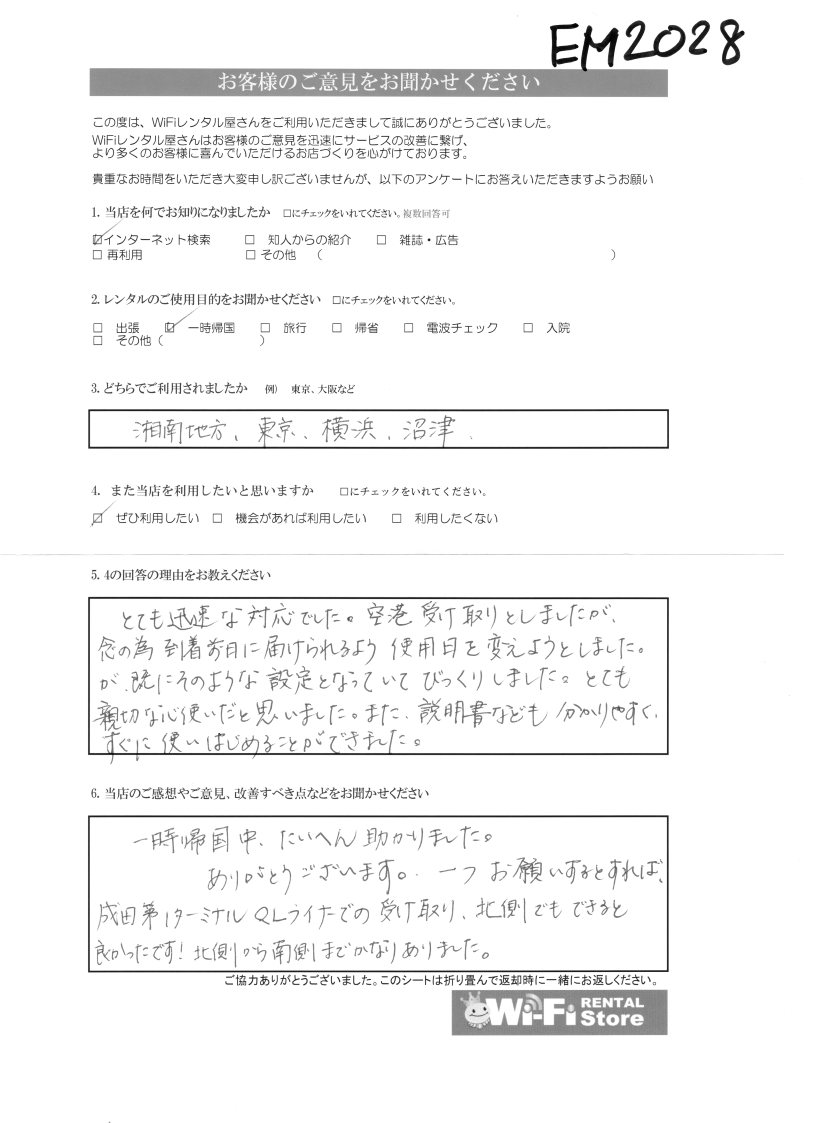 EM2028
お客様のご意見をお聞かせください
この度は、WiFiレンタル屋さんをご利用いただきまして誠にありがとうございました。
WiFiレンタル屋さんはお客様のご意見を迅速にサービスの改善に繋げ、
より多くのお客様に喜んでいただけるお店づくりを心がけております。
貴重なお時間をいただき大変申し訳ございませんが、以下のアンケートにお答えいただきますようお願い
1. 当店を何でお知りになりましたか □にチェックをいれてください。複数回答可
☑インターネット検索 □ 知人からの紹介 □ 雑誌・広告
□ 再利用 □ その他 ( )
2. レンタルのご使用目的をお聞かせください □にチェックをいれてください。
□ 出張 ☑ 一時帰国 □ 旅行 □ 帰省 □ 電波チェック □ 入院
□ その他 ( )
3. どちらでご利用されましたか 例) 東京、大阪など
湘南地方、東京、横浜、沼津.
4. また当店を利用したいと思いますか □にチェックをいれてください。
☑ ぜひ利用したい □ 機会があれば利用したい □ 利用したくない
5. 4の回答の理由をお教えください
とても迅速な対応でした。空港受け取りとしましたが、
念の為到着前日に届けられるよう使用日を変えようとしました。
が、既にそのような設定となっていてびっくりしました。とても
親切な心使いだと思いました。また、説明書なども分かりやすく、
すぐに使いはじめることができました。
6. 当店のご感想やご意見、改善すべき点などをお聞かせください
一時帰国中、たいへん助かりました。
ありがとうございます。一つお願いするとすれば、
成田第1ターミナルQLライナーでの受け取り、北側でもできると
良かったです!北側から南側までかなりありました。
ご協力ありがとうございました。このシートは折り畳んで返却時に一緒にお返しください。
Wi-Fi RENTAL Store